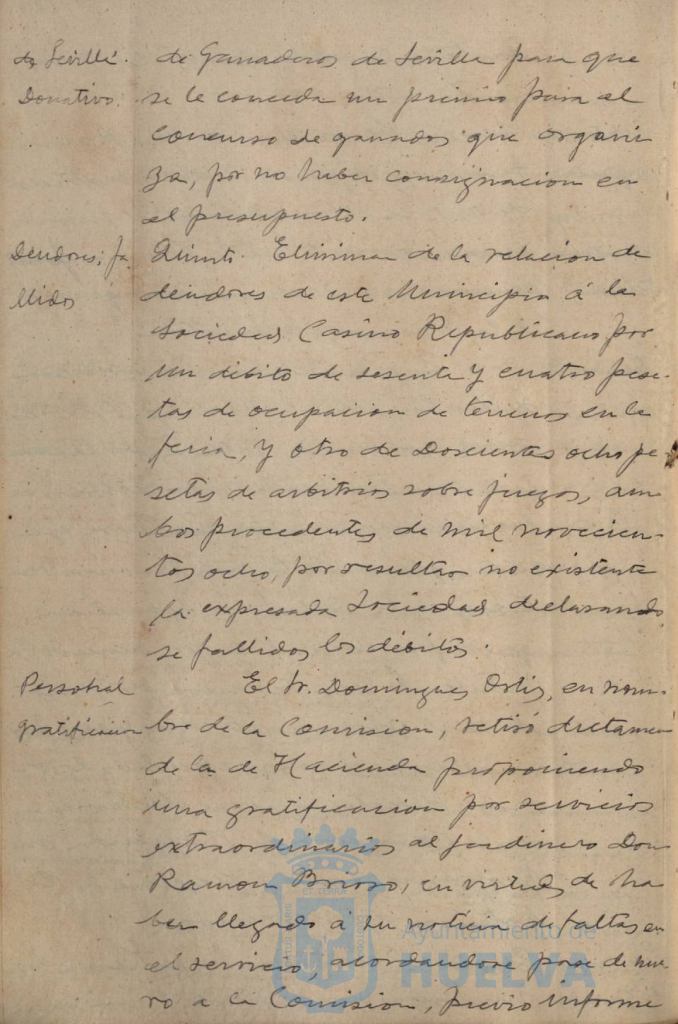 de Sevilla.
Donativo.
de Ganaderos de Sevilla para que
se le conceda un premio para el
concurso de ganados que organi
za, por no haber consignacion en
el presupuesto.
Deudores; fa
llidos
Quinto. Eliminar de la relacion de
deudores de este Municipio á la
Sociedad Casino Republicano por
un debito de sesenta y cuatro pese-
tas de ocupacion de terrenos en la
feria, y otro de Doscientas ocho pe-
setas de arbitrios sobre juegos, am
bos procedentes de mil novecien-
tos ocho, por resultar no existente
la expresada Sociedad declarando
se fallidos los debitos.
Personal
gratificacion
El Sr. Domingues Ortis, en nom-
bre de la Comision, retiró dictamen
de la de Hacienda proponiendo
una gratificacion por servicios
extraordinarios al jardinero Don
Ramon Brioso, en virtud de ha
ber llegado á su noticia de faltas en
el servicio, acordandose pase de nue
vo a la Comision, previo informe
Ayuntamiento de
HUELVA